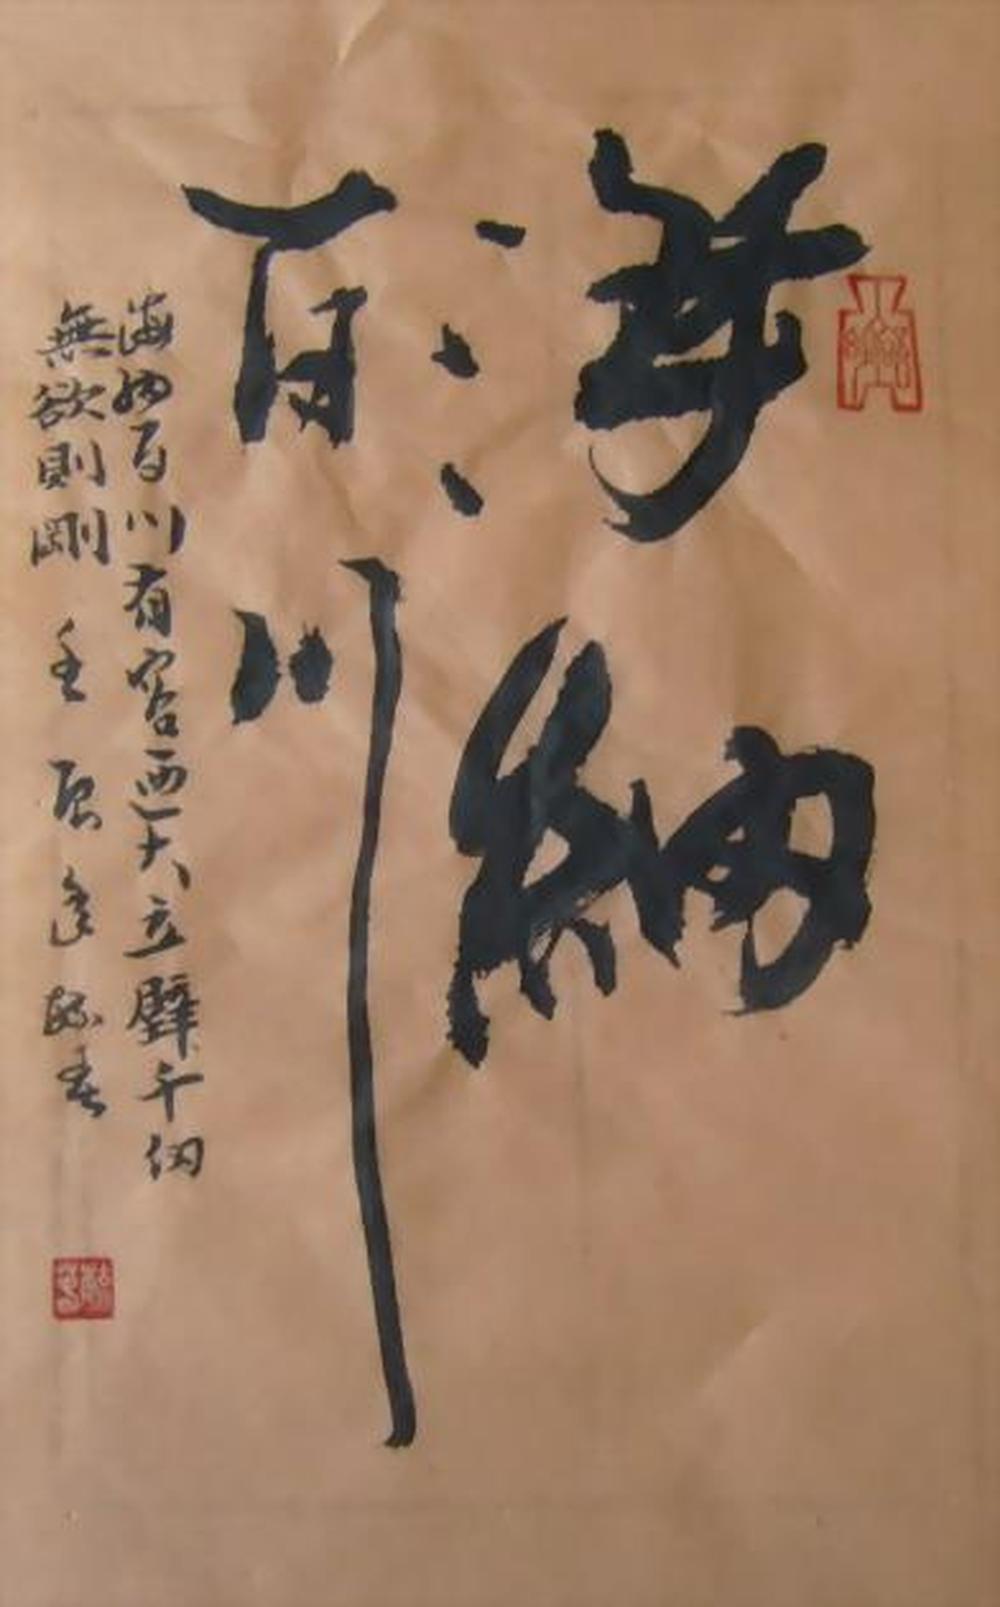 海納
百川
海納百川有容迺大立壁千仞
無欲則剛